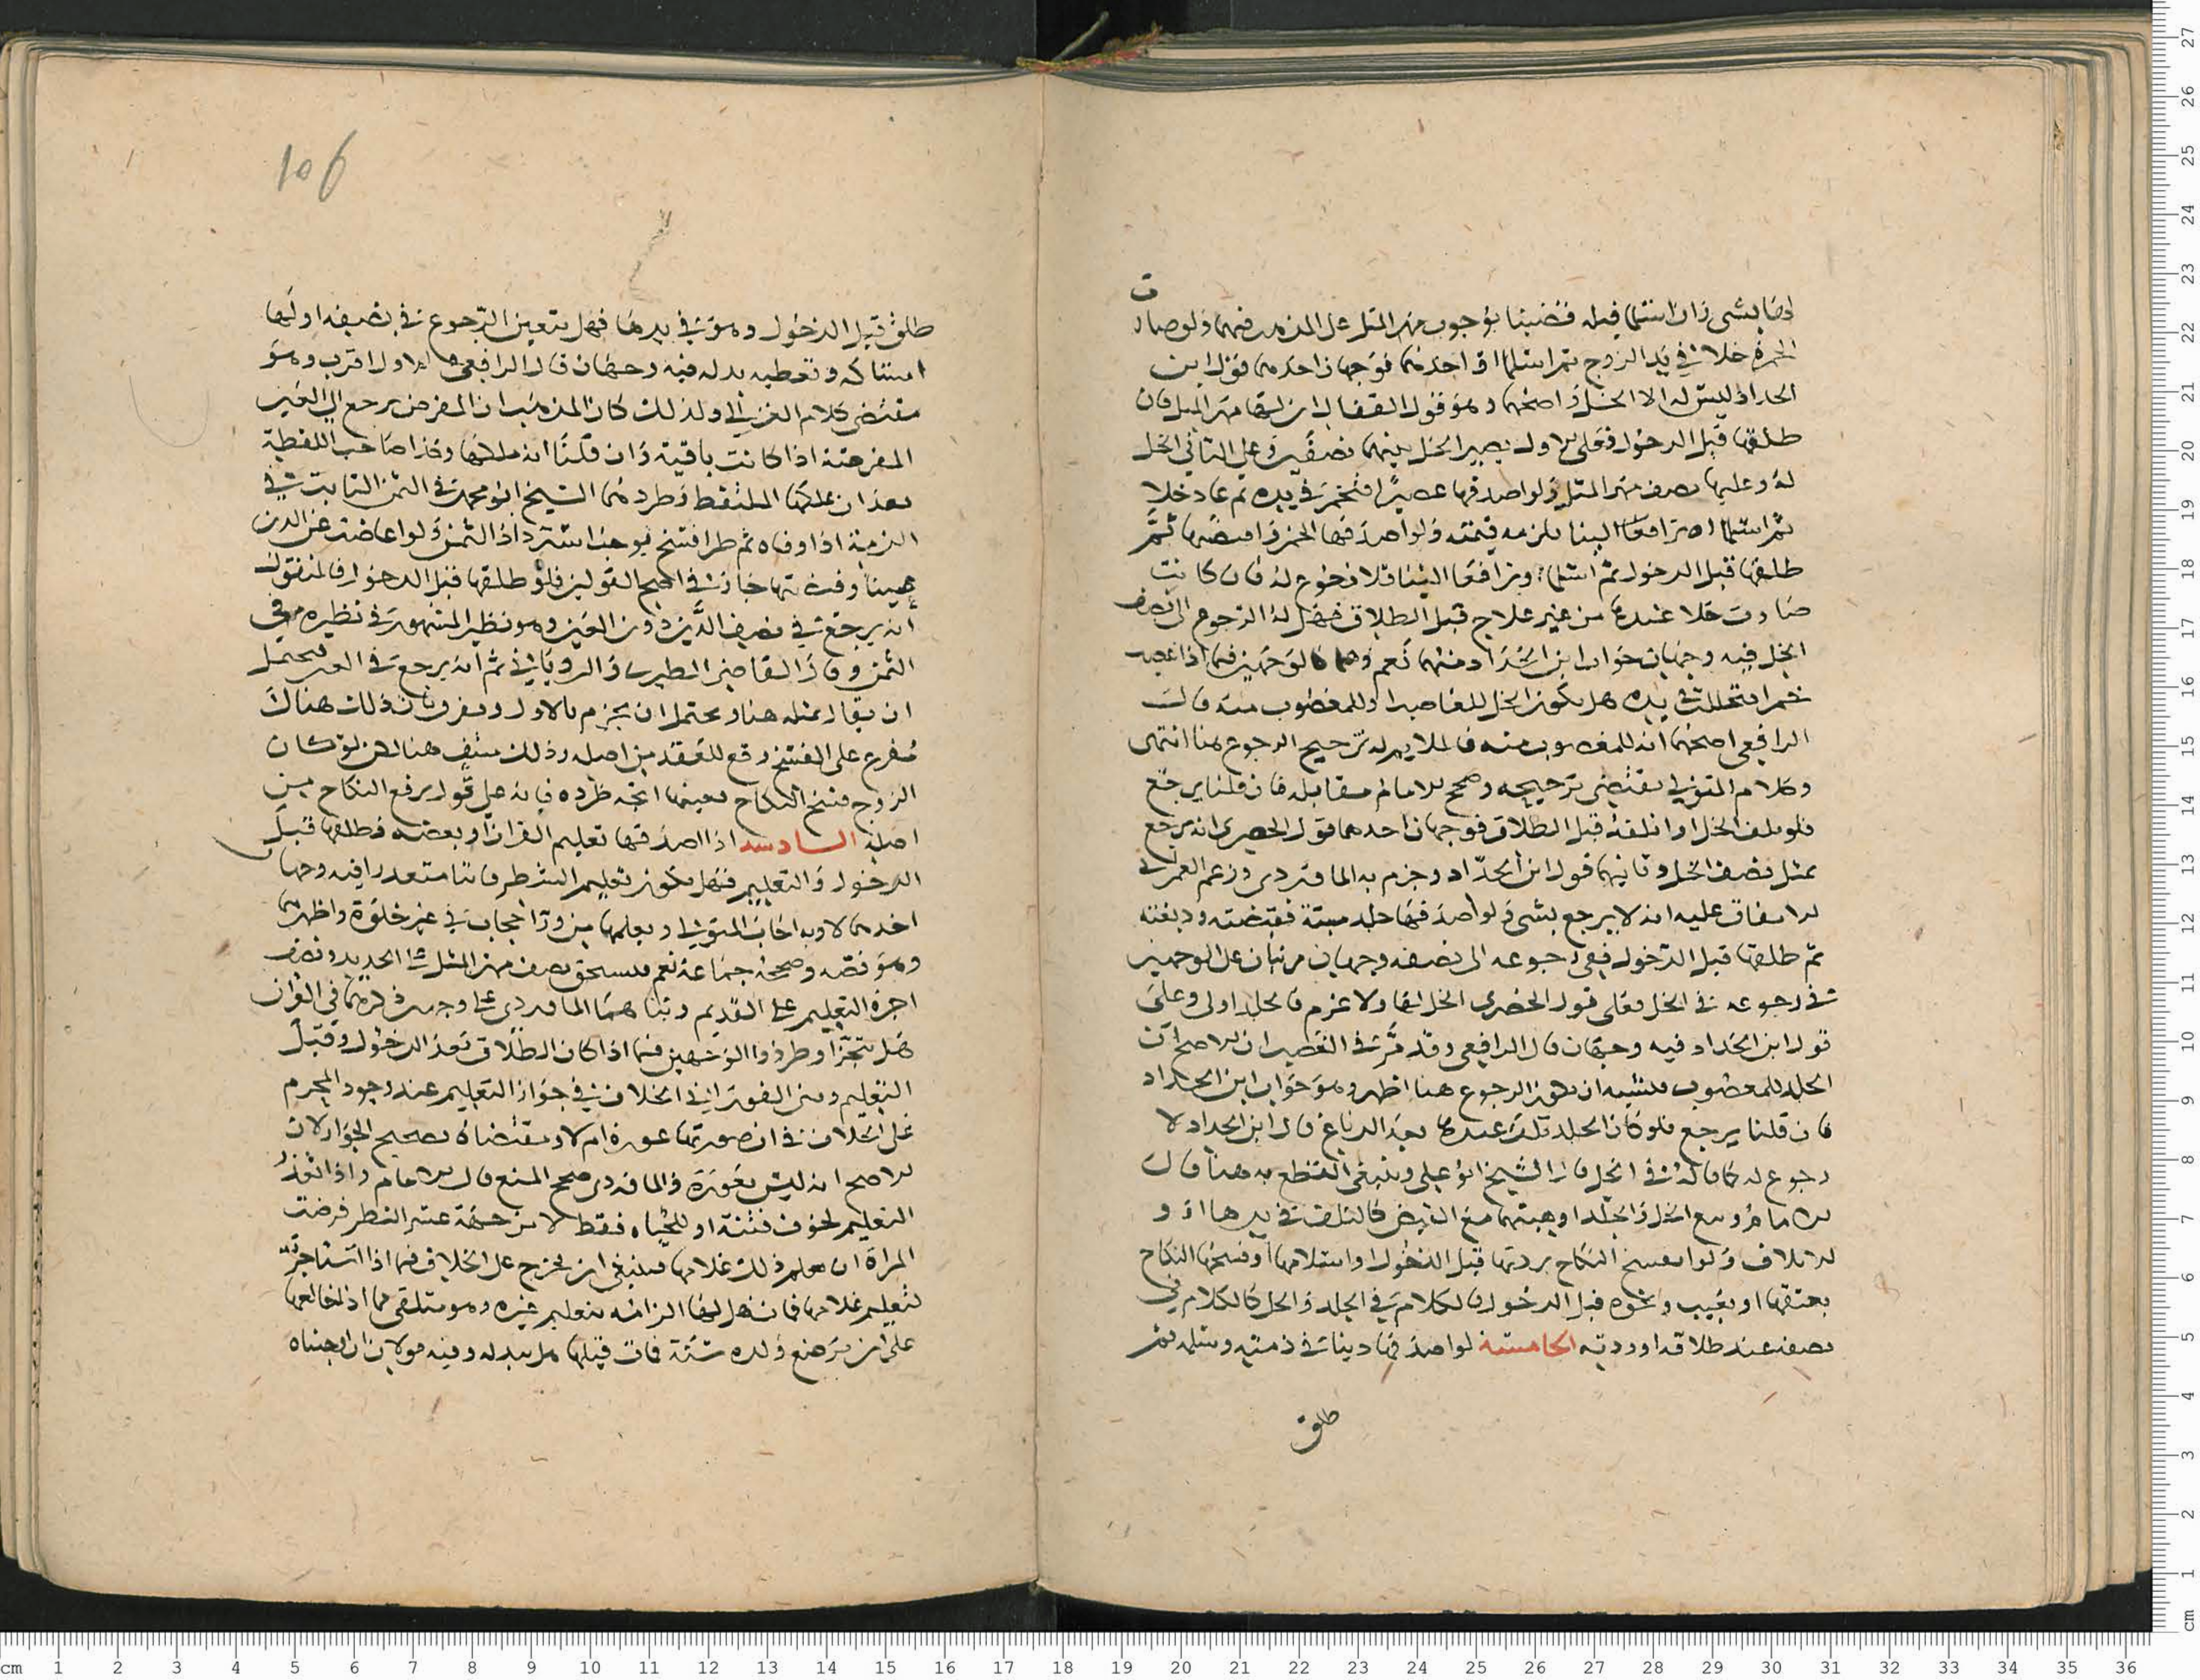 لها بشى وان اسلما قبله قضينا بوجوب مهر المثل على المذهب فيهما ولو صار
الخمر خلا في يد الزوج ثم اسلما او احدهما فوجهان احدهما قول ابن
الحداد ليس لها الا الخل واصحهما وهو قول القفال ان لها مهر المثل فان
طلقها قبل الدخول فعلى الاول يصير الخل بينهما نصفين وعلى الثاني الخل
له وعليه نصف مهر المثل ولو اصدقها عصيرا فتخمر في يده ثم عاد خلا
ثم اسلما او ترافعا الينا يلزمه قيمته ولو اصدقها الخمر واقبضها ثم
طلقها قبل الدخول ثم اسلما وترافعا الينا فلا رجوع له فان كانت
صارت خلا عندها من غير علاج قبل الطلاق فهل له الرجوع الى نصف
الخل فيه وجهان جواب ابن الحداد منهما نعم وهما كالوجهين فيما اذا غصب
خمرا فتخللت في يده هل يكون الخل للغاصب او للمغصوب منه قال
الرافعي اصحهما انه للمغصوب منه فالملايم له ترجيح الرجوع هنا انتهى
وكلام المتولي يقتضي ترجيحه وصحح الامام مقابله فان قلنا يرجع
فلو تلف الخل او اتلفته قبل الطلاق فوجهان احدهما قول الخضري انه يرجع
بمثل نصف الخل وثانيهما قول ابن الحداد وجزم به الماوردي وزعم العمراني
الاتفاق عليه انه لا يرجع بشى ولو اصدقها جلد ميتة فقبضته ودبغته
ثم طلقها قبل الدخول ففي رجوعه الى نصفه وجهان مرتبان على الوجهين
في رجوعه في الخل فعلى قول الخضري الخل لها ولا غرم فالجلد اولى وعلى
قول ابن الحداد فيه وجهان قال الرافعي وقد مر في الغصب ان الاصح ان
الجلد للمغصوب فليشبه ان يكون الرجوع هنا اظهر وهو جواب ابن الحداد
فان قلنا يرجع فلو كان الجلد تلف عندها بعد الدباغ قال ابن الحداد لا
رجوع له كما قاله في الخل قال الشيخ ابو علي وينبغي القطع به هنا قال
الامام وبيع الخل والجلد او هبتهما مع القبض كالتلف في يدها او
الاتلاف ولو انفسخ النكاح بردتها قبل الدخول او اسلامها او فسخها النكاح
بعتقها او بعيب ونحوه قبل الدخول فالكلام في الجلد والخل كالكلام في
نصفه عند طلاقه او ردته الخامسة لو اصدقها دينا في ذمته وسلمه ثم
طلق
106
طلق قبل الدخول وهو في يدها فهل يتعين الرجوع في نصفه او لها
امساكه وتعطيه بدله فيه وجهان قال الرافعي الاول اقرب وهو
مقتضى كلام الغزالي ولذلك كان المذهب ان المقرض يرجع الى العين
المقرضة اذا كانت باقية وان قلنا انه ملكها وكذا صاحب اللقطة
بعد ان تملكها الملتقط وطردهما الشيخ ابو محمد في الثمن الثابت في
الذمة اذا اوفاه ثم طرا فسخ يوجب استرداد الثمن ولو اعاضته عن الدين
عينا وقد تها جاز في اصح القولين فلو طلقها قبل الدخول فالمنقول
انه يرجع في نصف الدين دون العين وهو نظير المشهور في نظيره من
الثمن وقال القاضي الطبري والروياني ثم انه يرجع في العين فيحتمل
ان يقال بمثله هنا ويحتمل ان يجزم بالاول ويفرق بان ذلك هناك
مفرع على الفسخ رفع للعقد من اصله وذلك منتف هنا لكن لو كان
الزوج فسخ النكاح بعيبها اتجه طرده فانه على قول يرفع النكاح من
اصله السادسة اذا اصدقها تعليم القران او بعضه فطلقها قبل
الدخول والتعليم فهل يكون تعليم الشطر فائتا متعذرا فيه وجهان
احدهما لا وبه اجاب المتولي ويعلمها من ورا حجاب في غير خلوة واظهرهما
وهو نصه وصححه جماعة نعم فيستحق نصف مهر المثل على الجديد ونصف
اجرة التعليم على القديم وبناهما الماوردي على وجهين ذكرهما في القران
هل يتجزا وطردوا الوجهين فيما اذا كان الطلاق بعد الدخول وقبل
التعليم وبنى الفوراني الخلاف في جواز التعليم عند وجود المحرم
على الخلاف في ان صوتها عورة ام لا ومقتضاه تصحيح الجواز لان
الاصح انه ليس بعورة والماوردي صحح المنع قال الامام واذا تعذر
التعليم لخوف فتنة او للحياء فقط لا من جهة عسر الشطر فرضت
المراة ان يعلم ذلك غلامها فينبغي ان يخرج على الخلاف فيما اذا استاجرته
لتعليم غلامها فمات فهل لها الزامه بتعليم غيره وهو متلقى مما اذا خالعها
على ان ترضع ولده سنة فمات قبلها هل يبدله وفيه قولان ان الحقناه